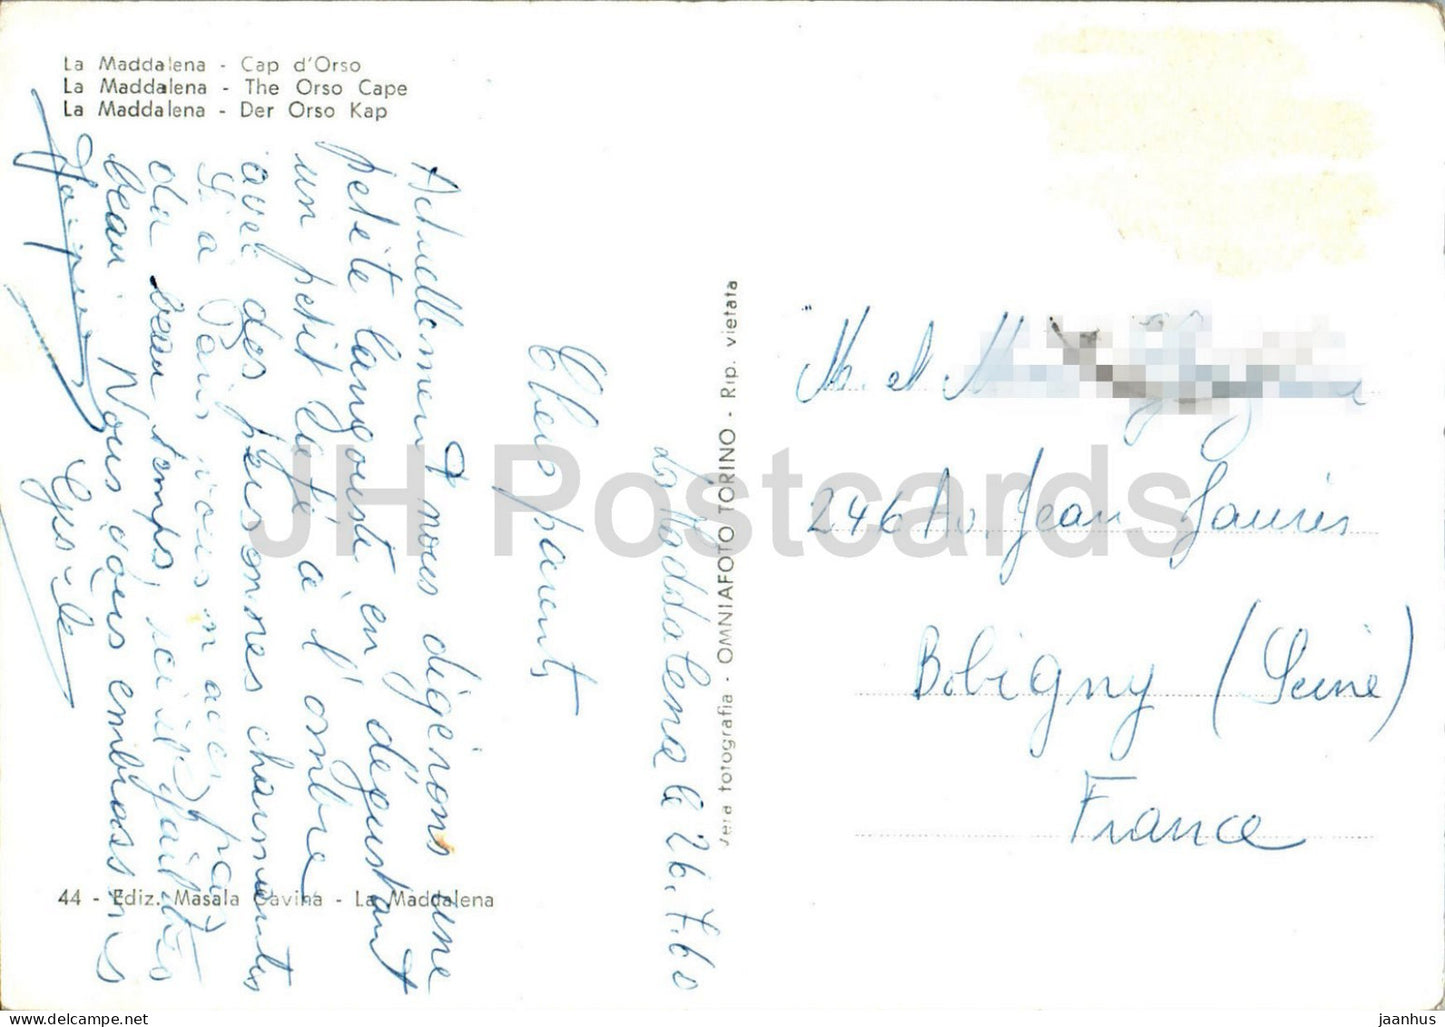 La Maddalena - Cap d'Orso
La Maddalena - The Orso Cape
La Maddalena - Der Orso Kap
La Maddalena le 26.7.60
Chers parents,
Actuellement nous digérons une
petite langouste en dégustant
un petit café à l'ombre
avec des personnes charmantes
à Paris vous n'avez pas
du beau temps, ici il fait très
beau. Nous vous embrassons
Gisèle
44 - Ediz. Masala Gavina - La Maddalena
Vera fotografia - OMNIAFOTO TORINO - Rip. vietata
M. et M
246 Av. Jean Jaurès
Bobigny (Seine)
France
JH Postcards
jaanhus